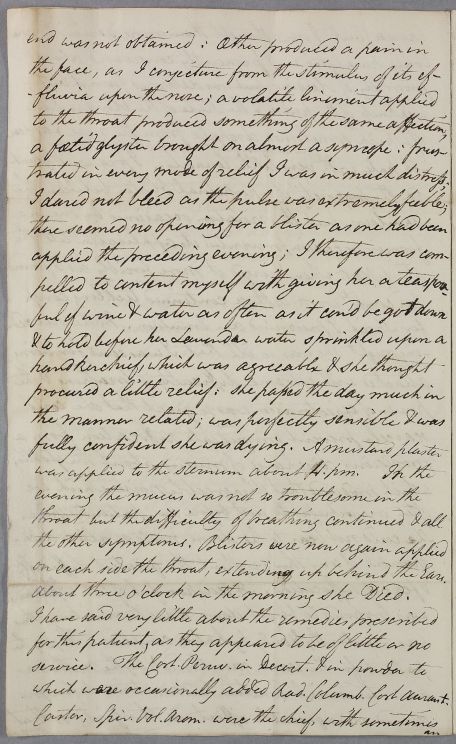 end was not obtained: Æther produced a pain in
the face, as I conjecture from the stimulus of its ef-
-fluvia upon the nose; a volatile liniment applied
to the throat produced something of the same affection,
a fœtid glyster brought on almost a syncope: frus-
trated in every mode of relief I was in much distress.
I dared not bleed as the pulse was extremely feeble;
there seemed no opening for a blister as one had been
applied the preceding evening; I therefore was com-
pelled to content myself with giving her a teaspoo-
ful of wine & water as often as it coud be got down
& to hold before her Lavender water sprinkled upon a
handkerchief, which was agreeable & she thought
procured a little relief: she passed the day much in
the manner related; was perfectly sensible & was
fully confident she was dying. A mustard plaster
was applied to the sternum about 4. p.m. In the
evening the mucus was not so troublesome in the
throat but the difficulty of breathing continued & all
the other symptoms. Blisters were now again applied
on each side the throat, extending up behind the Ears.
about three o'clock in the morning she Died.
I have said very little about the remedies prescribed
for this patient, as they appeared to be of little or no
service. The Cort. Peruv. in Decoct. & in powder to
which were occasionally added Rad. Columb. Cort Aurant.
Castor, Spir. Vol. Arom. were the chief, with sometimes
an